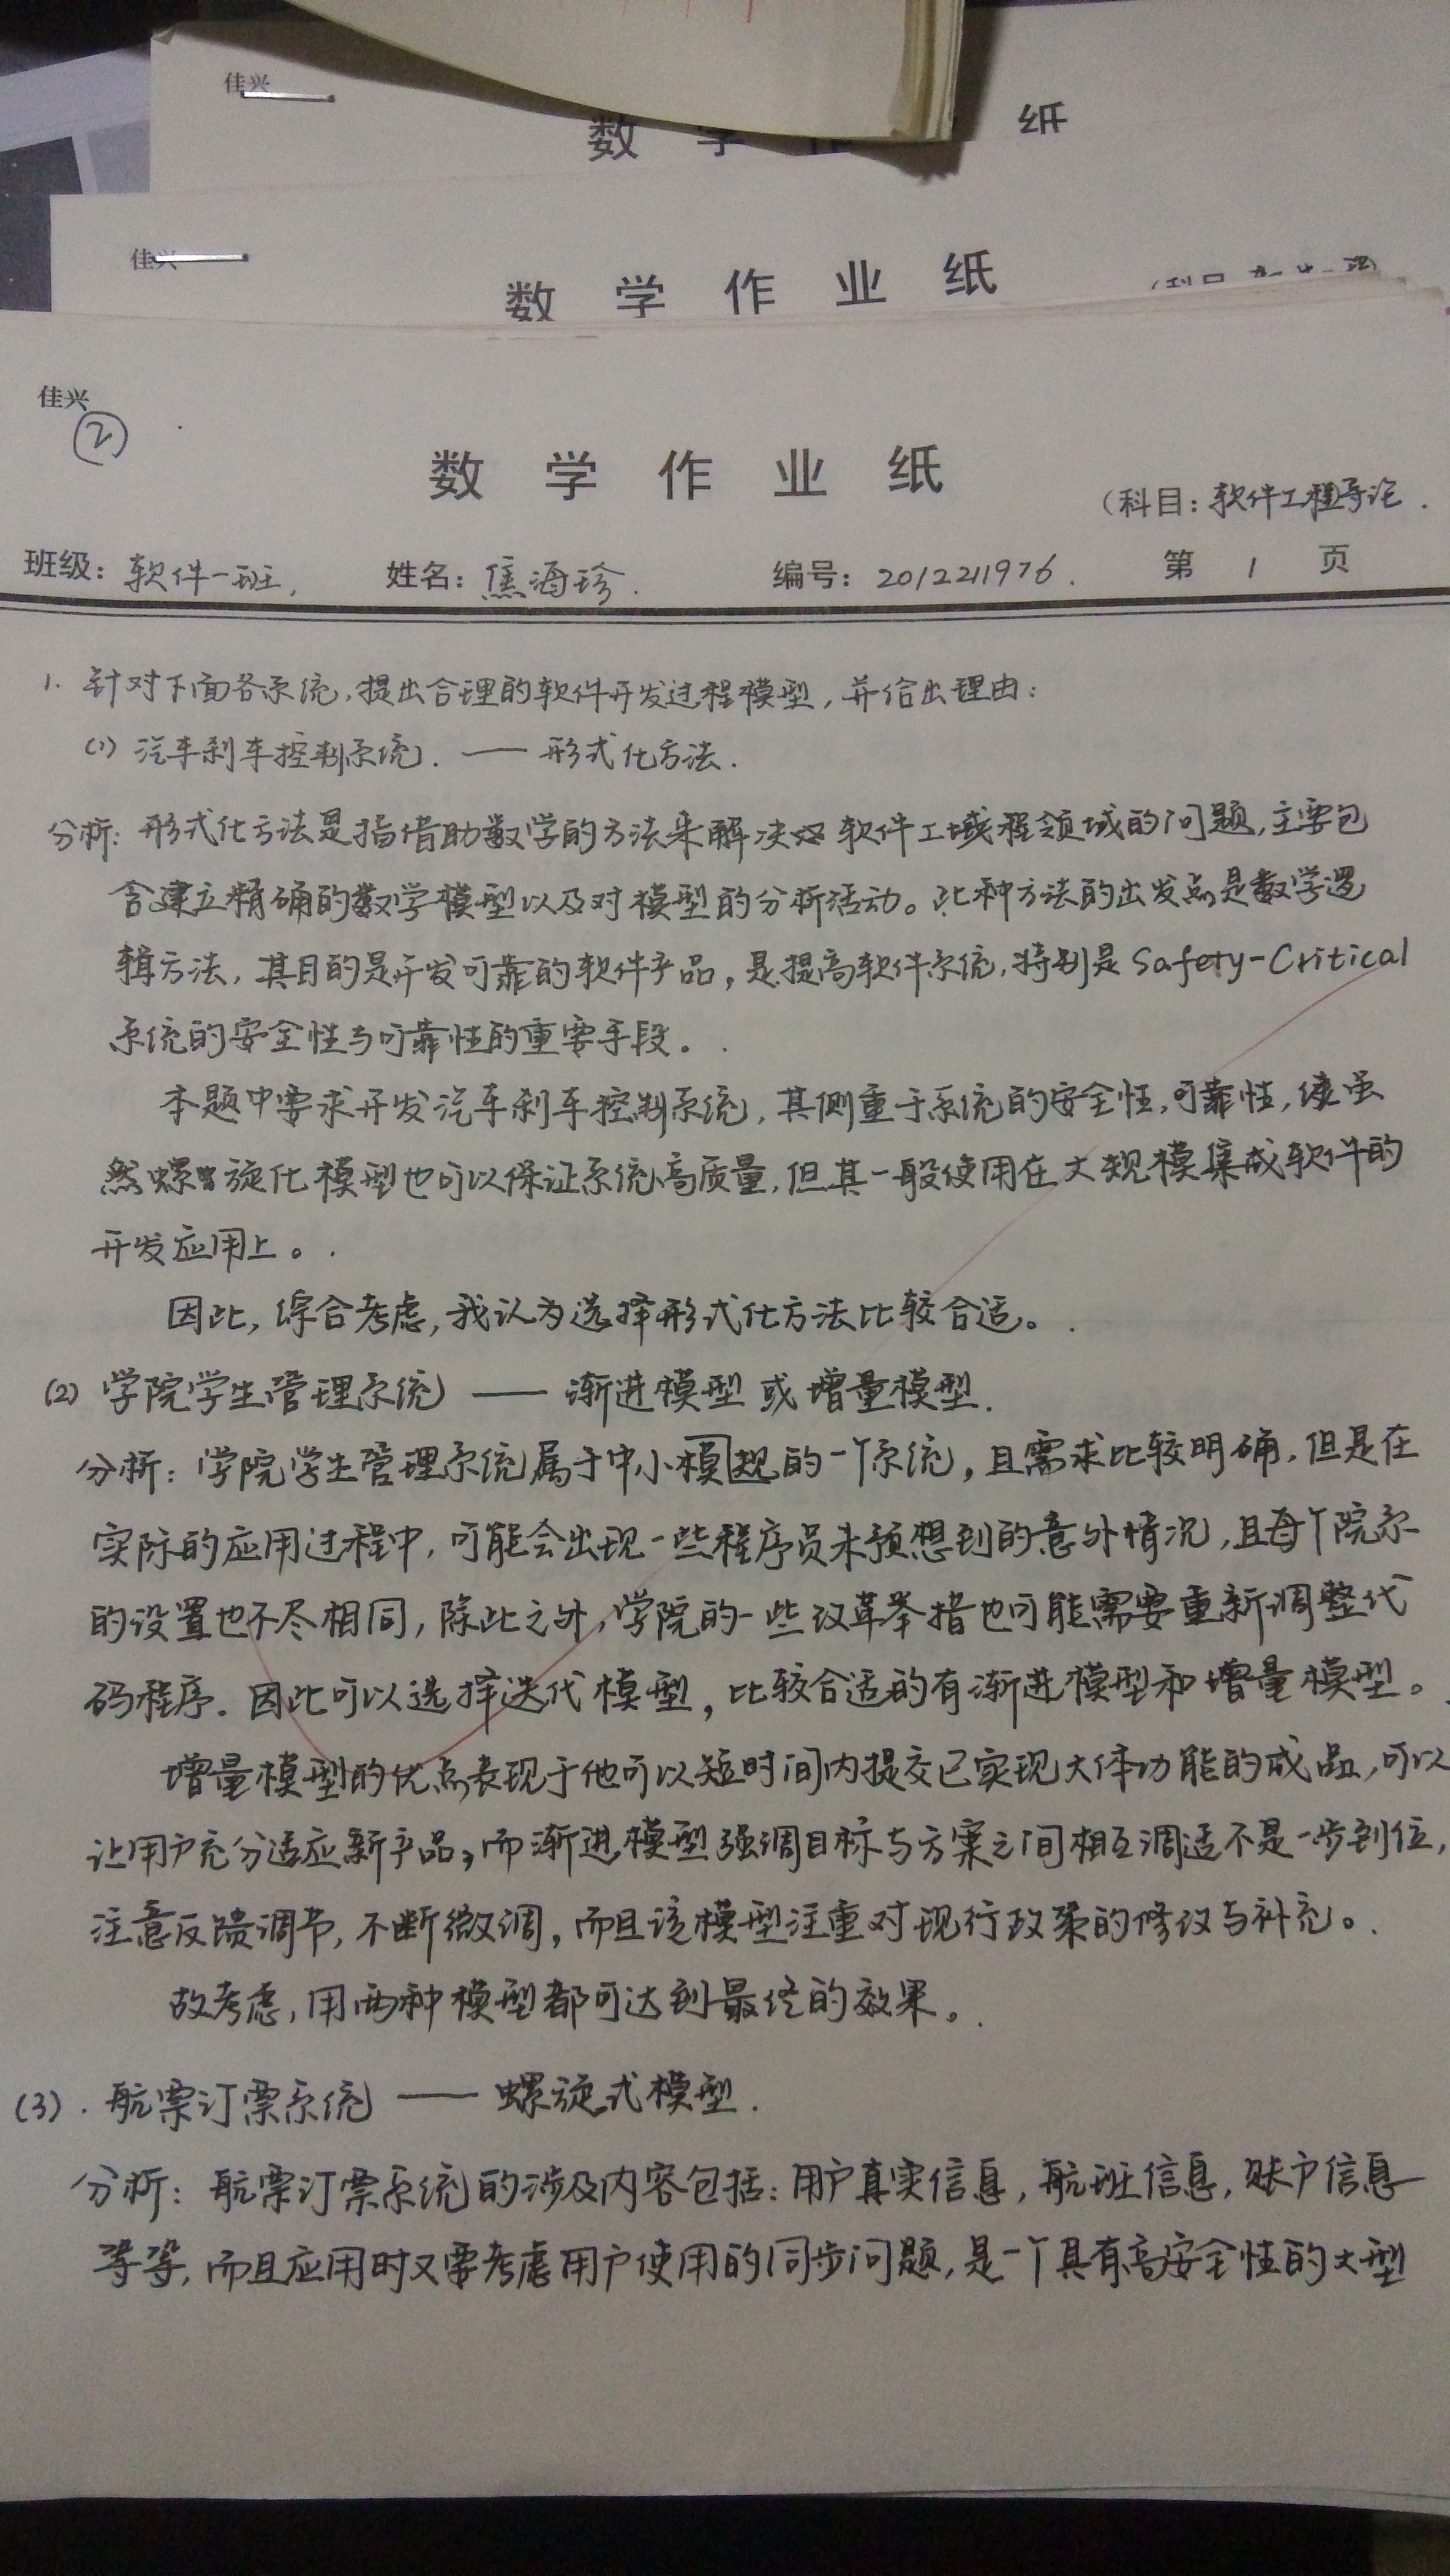 佳兴
数 学 纸
佳兴
数 学 作 业 纸
佳兴
②
数 学 作 业 纸
(科目: 软件工程导论.
班级: 软件一班, 姓名: 焦海珍. 编号: 2012211976. 第 1 页
1. 针对下面各系统,提出合理的软件开发过程模型,并给出理由:
(1) 汽车刹车控制系统. —— 形式化方法.
分析: 形式化方法是指借助数学的方法来解决 软件工程领域的问题,主要包
含建立精确的数学模型以及对模型的分析活动。此种方法的出发点是数学逻
辑方法, 其目的是开发可靠的软件产品, 是提高软件系统, 特别是 Safety-Critical
系统的安全性与可靠性的重要手段。.
本题中要求开发汽车刹车控制系统, 其侧重于系统的安全性,可靠性, 虽
然螺旋化模型也可以保证系统高质量,但其一般使用在大规模集成软件的
开发应用上。.
因此, 综合考虑, 我认为选择形式化方法比较合适。.
(2) 学院学生管理系统 —— 渐进模型 或 增量模型.
分析: 学院学生管理系统属于中小模规的一个系统, 且需求比较明确, 但是在
实际的应用过程中, 可能会出现一些程序员未预想到的意外情况, 且每个院系
的设置也不尽相同, 除此之外, 学院的一些改革举措也可能需要重新调整代
码程序. 因此可以选择迭代模型, 比较合适的有渐进模型和增量模型。
增量模型的优点表现于他可以短时间内提交已实现大体功能的成品, 可以
让用户充分适应新产品, 而渐进模型强调目标与方案之间相互调适不是一步到位,
注意反馈调节, 不断微调, 而且该模型注重对现行政策的修改与补充。.
故考虑, 用两种模型都可达到最终的效果。.
(3). 航票订票系统 —— 螺旋式模型.
分析: 航票订票系统的涉及内容包括: 用户真实信息, 航班信息, 账户信息
等等, 而且应用时又要考虑用户使用的同步问题, 是一个具有高安全性的大型